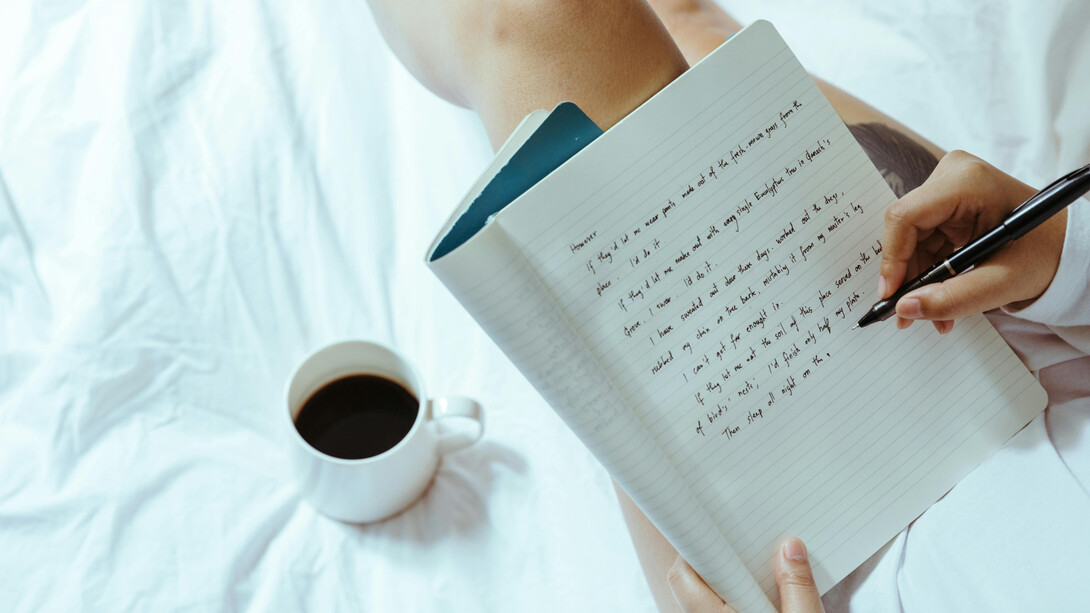 However
If they'd let me wear pants made out of the fresh-manure grass from the
place, I'd do it.
If they'd let me make out with every single Eucalyptus tree in Ganesh's
Grove, I swear, I'd do it.
I have sweated out dew these days, worked out the dregs,
rubbed my chin on tree bark, mistaking it from my master's leg.
I can't get far enough in.
If they let me eat the soil of this place served on the bed
of birds' nests, I'd finish only half my plate.
Then sleep all night on the